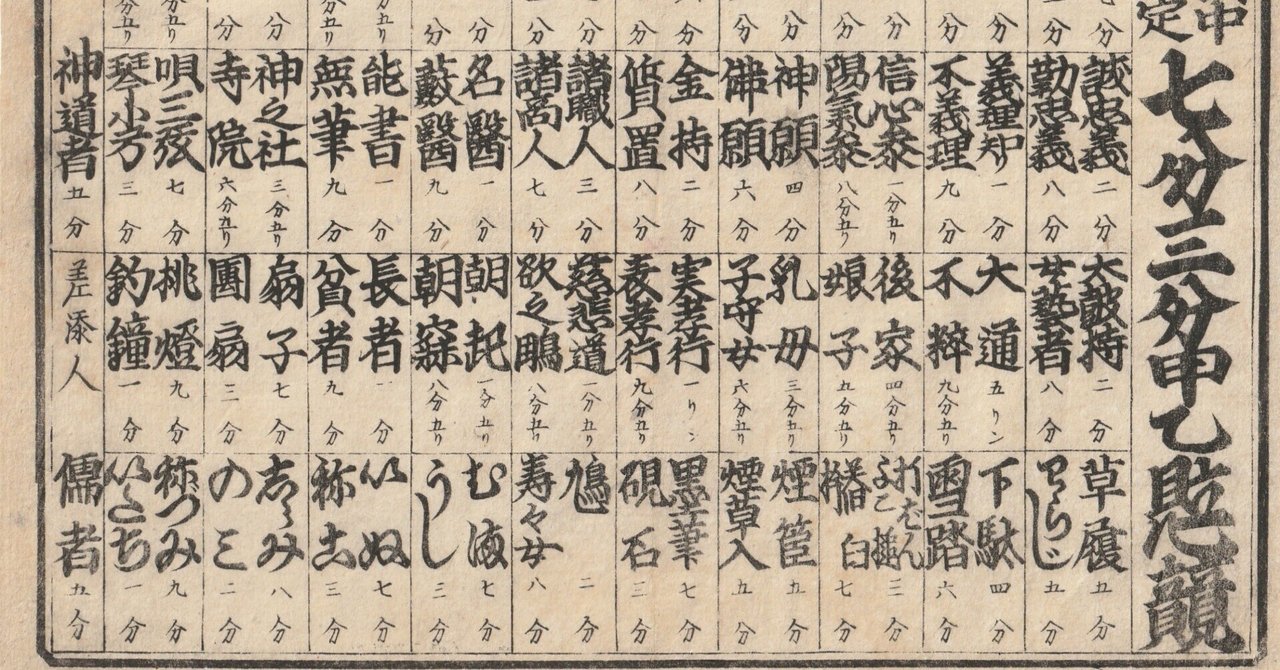 七分三分甲乙貶競
誠忠義 二分
勤忠義 八分
義理知り 一分
不義理 九分
信心参 一分五り
陽氣参 八分五り
神願 四分
佛願 六分
金持 二分
質置 八分
諸職人 三分
諸商人 七分
名醫 一分
藪醫 九分
能書 一分
無筆 九分
神之社 三分五り
寺院 六分五り
唄三弦 七分
琴小弓 三分
神道者 五分
太皷持 二分
女藝者 八分
大通 五リン
不粹 九分五り
後家 四分五り
娘子 五分五り
乳母 三分五り
子守女 六分五り
実孝行 一リン
表孝行 九分五り
慈悲道 一分五り
欲之鵰 八分五り
朝起 一分五り
朝寐 八分五り
長者 一分
貧者 九分
扇子 七分
團扇 三分
挑燈 九分
釣鐘 一分
差添人
草履 五分
わらじ 五分
下駄 四分
雪踏 六分
よこ槌 三分
臼 七分
煙管 五分
煙草入 五分
墨筆 七分
硯石 三分
鳩 二分
寿々女 八分
むま 七分
うし 三分
いぬ 七分
ねこ 三分
しらみ 八分
のミ 二分
ねづみ 九分
いたち 一分
儒者 五分